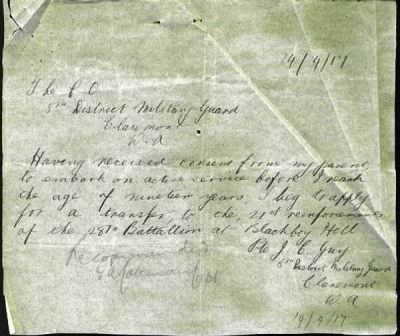 19/9/17
The C O
5th District Military Guard
Claremont
W A
Having received consent from my parents
to embark on active service before I reach
the age of nineteen years, I beg to apply
for a transfer to the 21st reinforcements
of the 28th Battallion at Blackboy Hill
Pte J. E. Guy
5th District Military Guard
Claremont
W A
19/9/17
Recommended
Capt